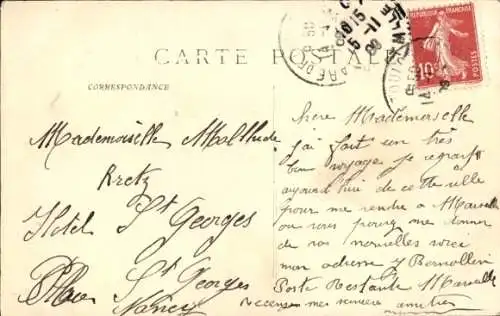 CARTE POSTALE
CORRESPONDANCE
REPUBLIQUE FRANÇAISE
10
POSTES
Mademoiselle Mathilde
Kretz
Hotel St Georges
Place St Georges
Nancy
Chère Mademoiselle
j'ai fait un très
bon voyage je repars
aujourd'hui de cette ville
pour me rendre a Marseille
ou vous pouvez me donner
de vos nouvelles voici
mon adresse
Poste Restante Marseille
Recevez mes sincères amitiés